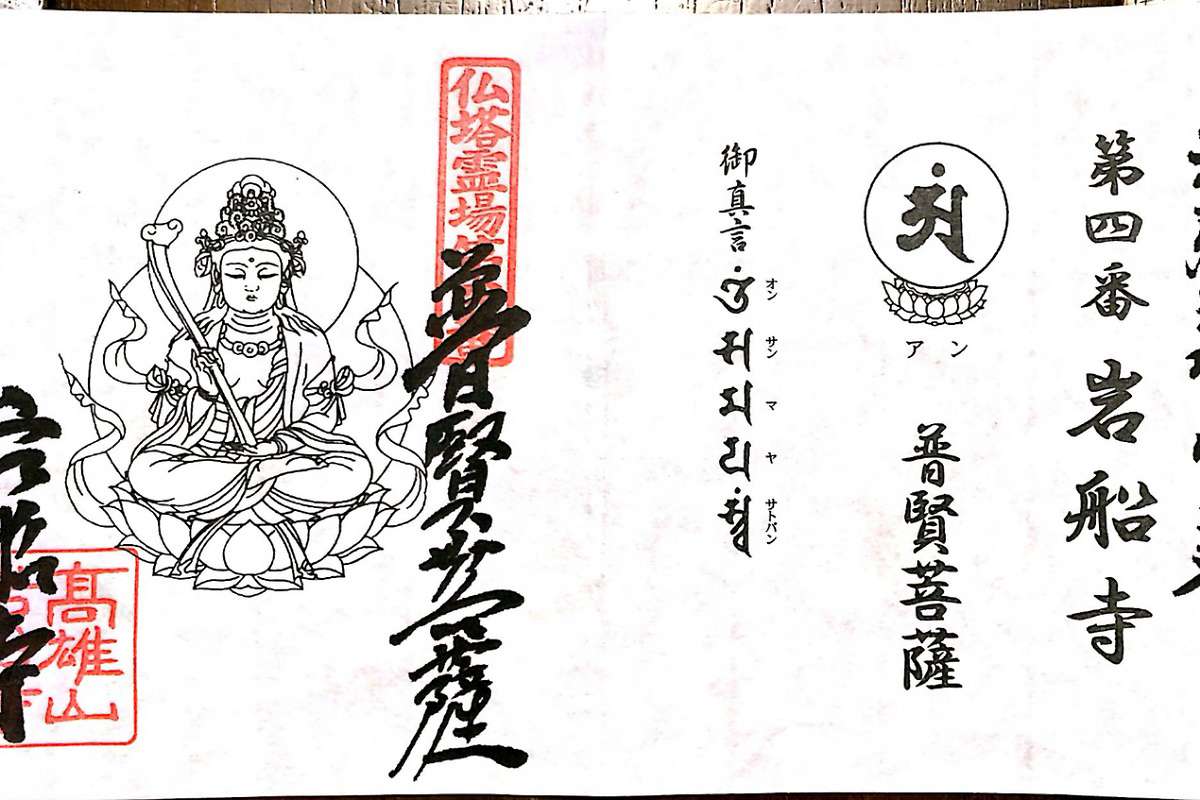 第四番 岩船寺
アン
普賢菩薩
御真言
オン サン マ ヤ サトバン
仏塔霊場
普賢菩薩
岩船寺
高雄山